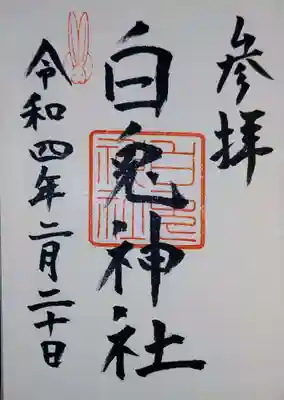 参拝
白兎神社
令和四年二月二十日